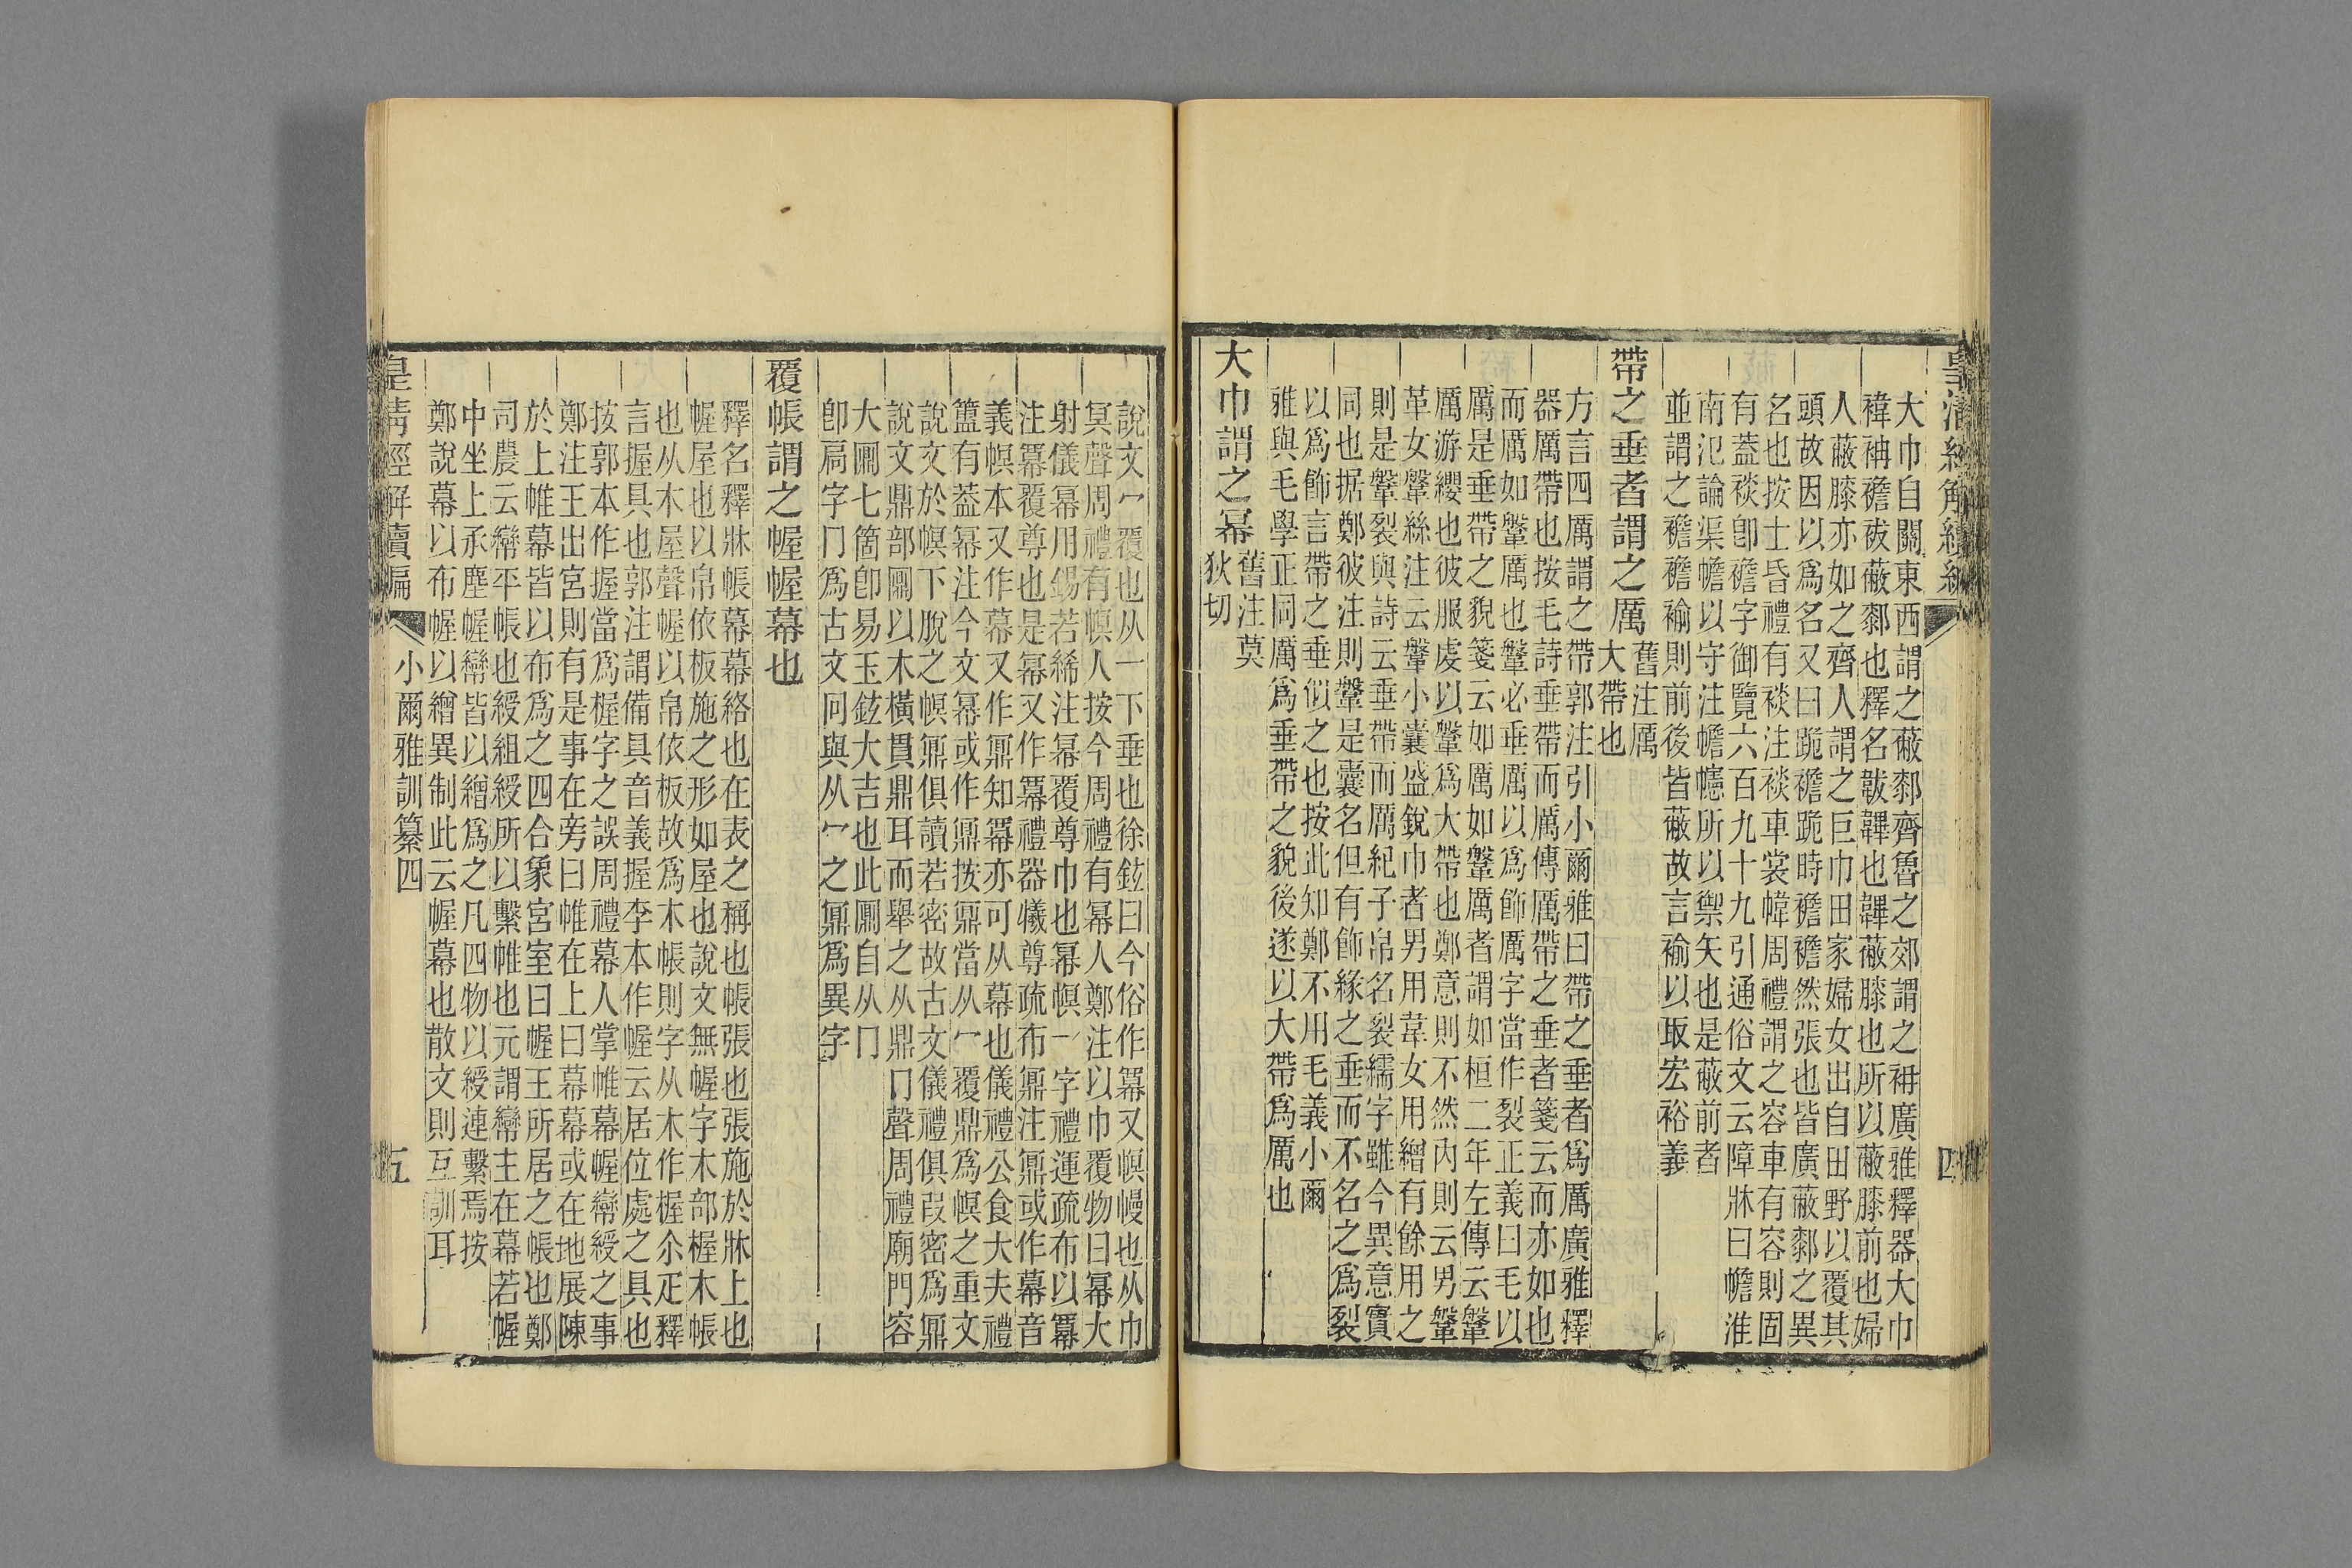 大巾自關東西謂之蔽䣛齊魯之郊謂之袡廣雅釋器大巾
褘袡襜袚蔽䣛也釋名韍韠也韠蔽膝也所以蔽膝前也婦
人蔽膝亦如之齊人謂之巨巾田家婦女出自田野以覆其
頭故因以爲名又曰跪襜跪時襜襜然張也皆廣蔽䣛之異
名也按士昏禮有裧注裧車裳幃周禮謂之容車有容則固
有蓋裧卽襜字御覽六百九十九引通俗文云障牀曰幨淮
南氾論渠幨以守注幨幰所以禦矢也是蔽前者
並謂之襜襜褕則前後皆蔽故言褕以取宏裕義
帶之垂者謂之厲舊注厲大帶也
方言四厲謂之帶郭注引小爾雅曰帶之垂者爲厲廣雅釋
器厲帶也按毛詩垂帶而厲傳厲帶之垂者箋云而亦如也
而厲如鞶厲也鞶必垂厲以爲飾厲字當作裂正義曰毛以
厲是垂帶之貌箋云如厲如鞶厲者謂如桓二年左傳云鞶
厲游纓也彼服虔以鞶爲大帶也鄭意則不然內則云男鞶
革女鞶絲注云鞶小囊盛銳巾者男用韋女用繒有餘用之
則是鞶裂與詩云垂帶而厲紀子帛名裂繻字雖今異意實
同也据鄭彼注則鞶是囊名但有飾緣之垂而不名之爲裂
以爲飾言帶之垂似之也按此知鄭不用毛義小爾
雅與毛學正同厲爲垂帶之貌後遂以大帶爲厲也
大巾謂之冪舊注莫狄切
皇清經解續編
四
說文冖覆也从一下垂也徐鉉曰今俗作冪又幎幔也从巾
冥聲周禮有幎人按今周禮有冪人鄭注以巾覆物曰冪大
射儀冪用錫若絺注冪覆尊巾也冪幎一字禮運疏布以冪
注冪覆尊也是冪又作冪禮器犧尊疏布鼏注鼏或作幕音
義幎本又作幕又作鼏知冪亦可从幕也儀禮公食大夫禮
簠有蓋冪注今文冪或作鼏按鼏當从冖覆鼎爲幎之重文
說文於幎下脫之幎鼏俱讀若密故古文儀禮俱叚密爲鼏
說文鼎部鼏以木橫貫鼎耳而舉之从鼎冂聲周禮廟門容
大鼏七箇卽易玉鉉大吉也此鼏自从冂
卽扃字冂爲古文冋與从冖之鼏爲異字
覆帳謂之幄幄幕也
釋名釋牀帳幕幕絡也在表之稱也帳張也張施於牀上也
幄屋也以帛依板施之形如屋也說文無幄字木部楃木帳
也从木屋聲幄以帛依板故爲木帳則字从木作楃尒疋釋
言握具也郭注謂備具音義握李本作幄云居位處之具也
按郭本作握當爲楃字之誤周禮幕人掌帷幕幄帟綬之事
鄭注王出宮則有是事在旁曰帷在上曰幕幕或在地展陳
於上帷幕皆以布爲之四合象宮室曰幄王所居之帳也鄭
司農云帟平帳也綬組綬所以繫帷也元謂帟主在幕若幄
中坐上承塵幄帟皆以繒爲之凡四物以綬連繫焉按
鄭說幕以布幄以繒異制此云幄幕也散文則互訓耳
皇清經解續編
小爾雅訓纂四
五